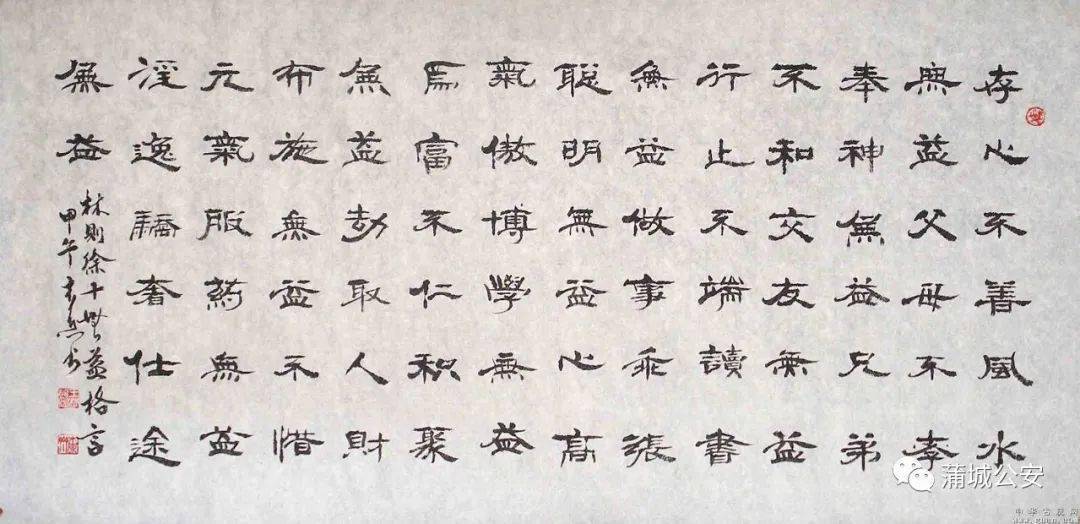 存心不善風水
無益父母不孝
奉神無益兄弟
不和交友無益
行止不端讀書
無益做事乖張
聪明無益心高
氣傲博學無益
為富不仁积聚
無益劫取人財
布施無益不惜
元氣服葯無益
淫逸驕奢仕途
無益
林則徐十無益格言
甲午书
蒲城公安